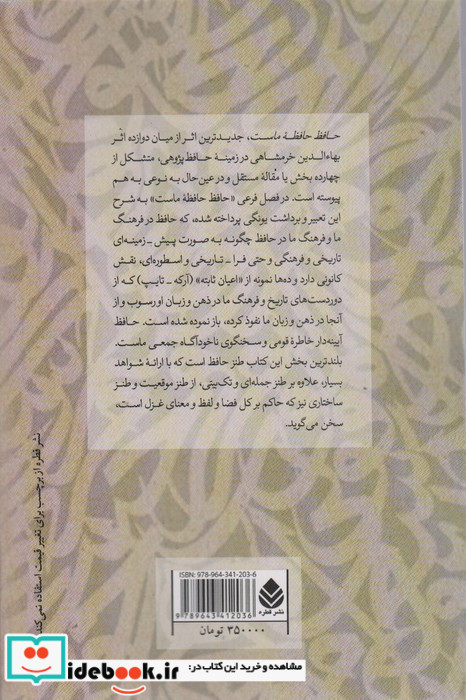 حافظ حافظهٔ ماست، جدیدترین اثر از میان دوازده اثر
بهاءالدین خرمشاهی در زمینهٔ حافظ‌پژوهی، متشکل از
چهارده بخش یا مقالهٔ مستقل و در عین حال به نوعی به هم
پیوسته است. در فصل فرعی «حافظ حافظهٔ ماست» به شرح
این تعبیر و برداشت یونگی پرداخته شده، که حافظ در فرهنگ
ما و فرهنگ ما در حافظ چگونه به صورت پیش ـ زمینه‌ای
تاریخی و فرهنگی و حتی فرا ـ تاریخی و اسطوره‌ای، نقش
کانونی دارد و ده‌ها نمونه از «اعیان ثابته» (آرکه ـ تایپ) که از
دوردست‌های تاریخ و فرهنگ ما در ذهن و زبان او رسوب و از
آنجا در ذهن و زبان ما نفوذ کرده، باز نموده شده است. حافظ
آیینه‌دار خاطرهٔ قومی و سخنگوی ناخودآگاه جمعی ماست.
بلندترین بخش این کتاب طنز حافظ است که با ارائهٔ شواهد
بسیار، علاوه بر طنز جمله‌ای و تک‌بیتی، از طنز موقعیت و طنز
ساختاری نیز که حاکم بر کل فضا و لفظ و معنای غزل است،
سخن می‌گوید.
نشر قطره از برچسب برای تغییر قیمت استفاده نمی‌کند
ISBN: 978-964-341-203-6
9 789643 412036
نشر قطره
۳۵۰۰۰۰ تومان
مشاهده و خرید این کتاب در:
idebook.ir